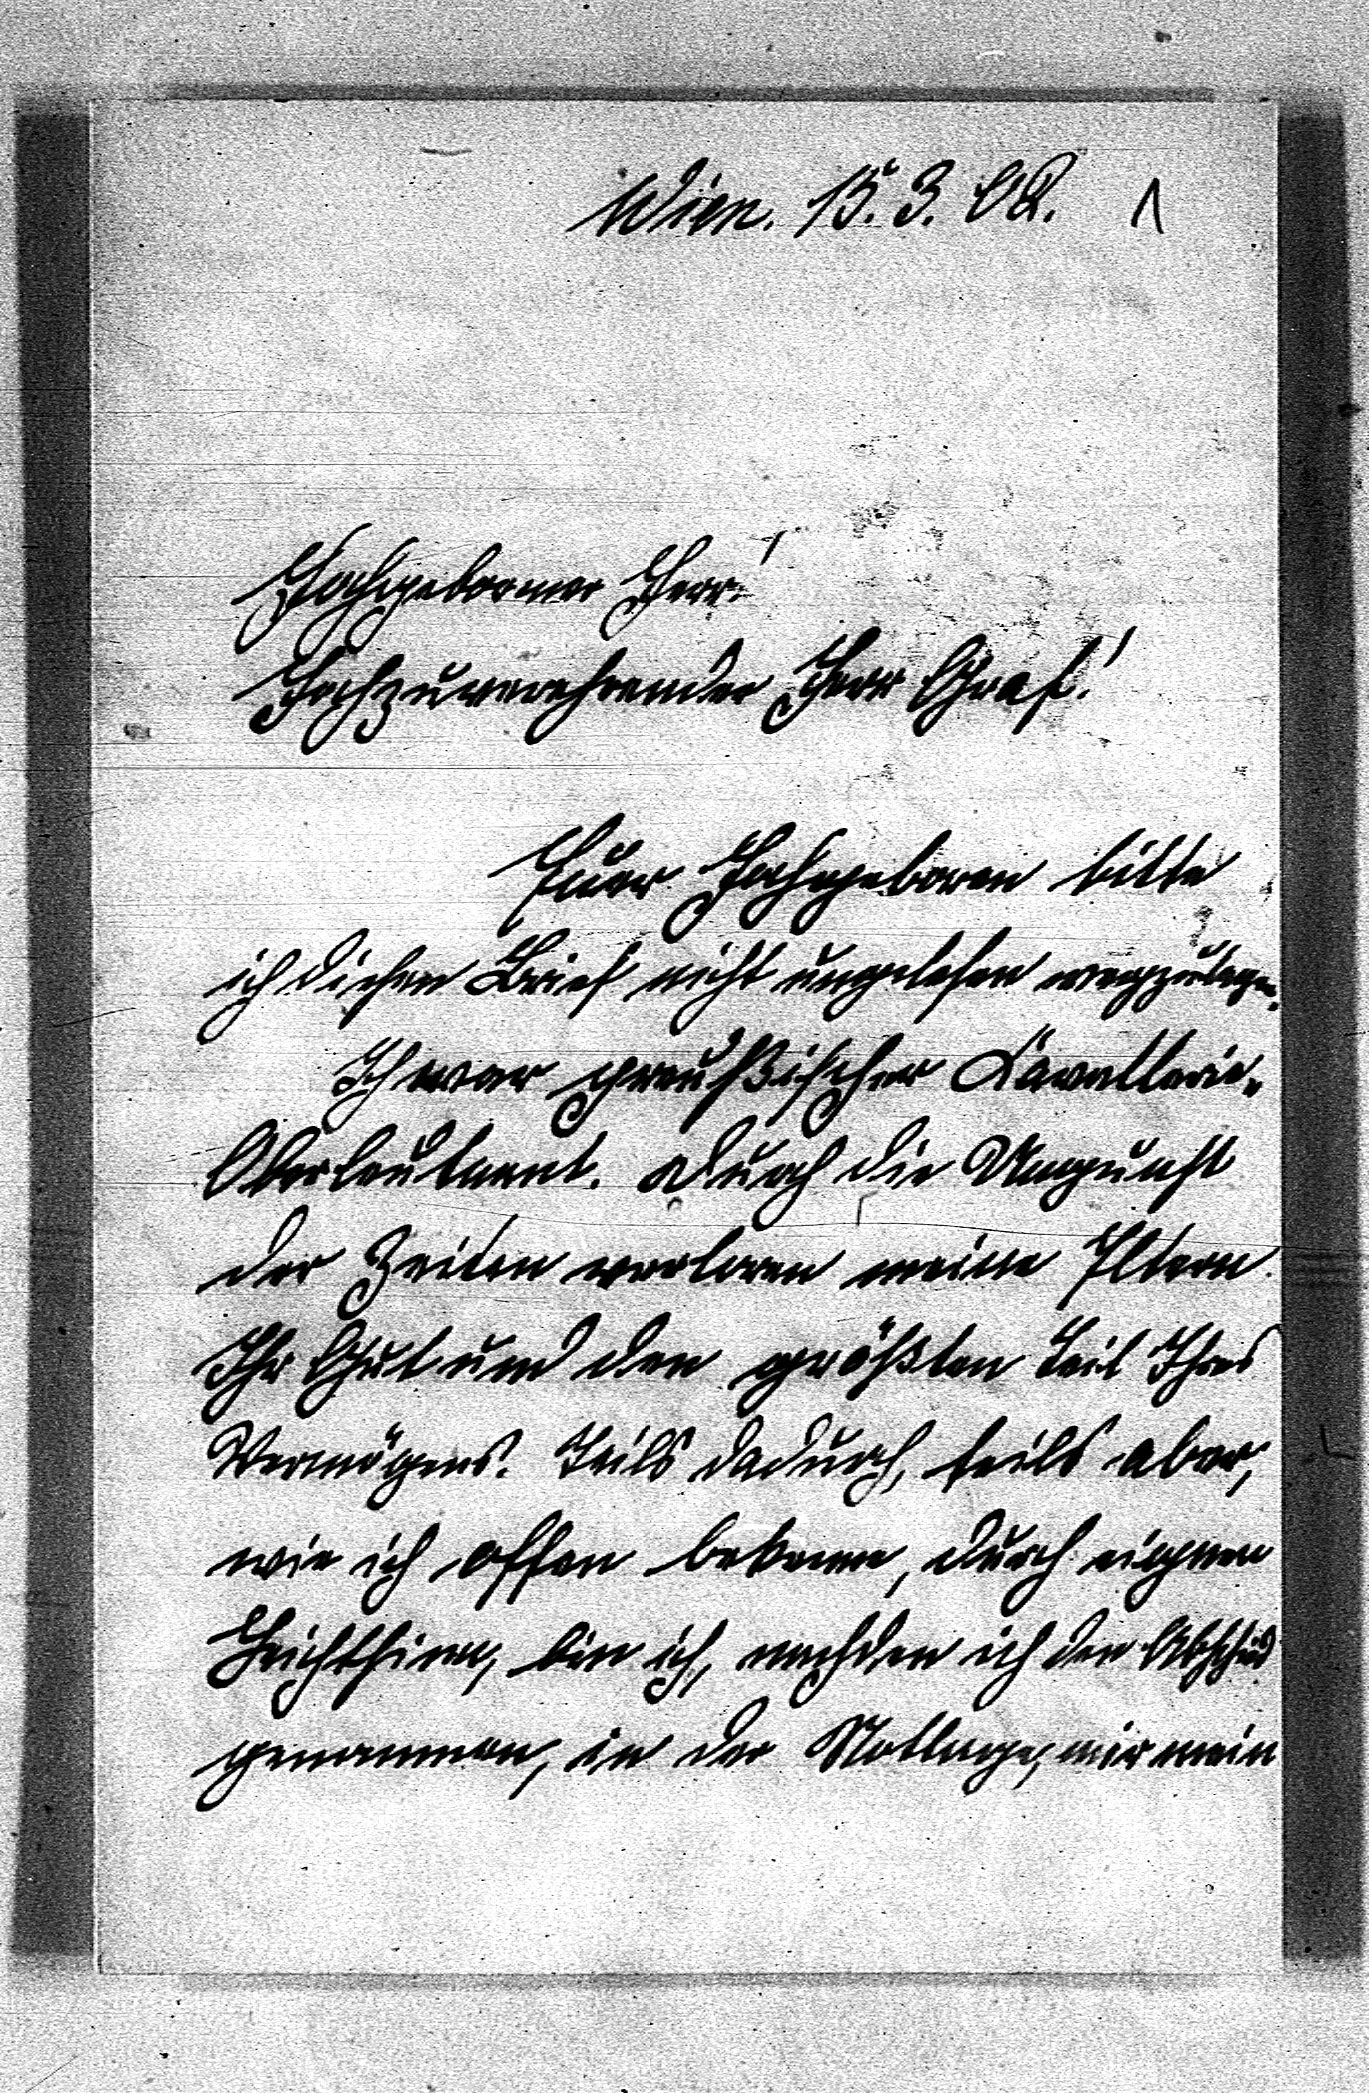 Wien. 15.3.02. 1
Hochgeborener Herr!
Hochzuverehrender Herr Graf!
Euer Hochgeboren bitte
ich diesen Brief nicht ungelesen wegzulegen.
Ich war preußischer Cavallerie-
Oberleutnant. Durch die Ungunst
der Zeiten verloren meine Eltern
Ihr Gut und den größten Teil Ihres
Vermögens. Teils dadurch, teils aber,
wie ich offen bekenne, durch eignen
Leichtsinn, bin ich, nachdem ich den Abschied
genommen, in der Notlage, mir mein